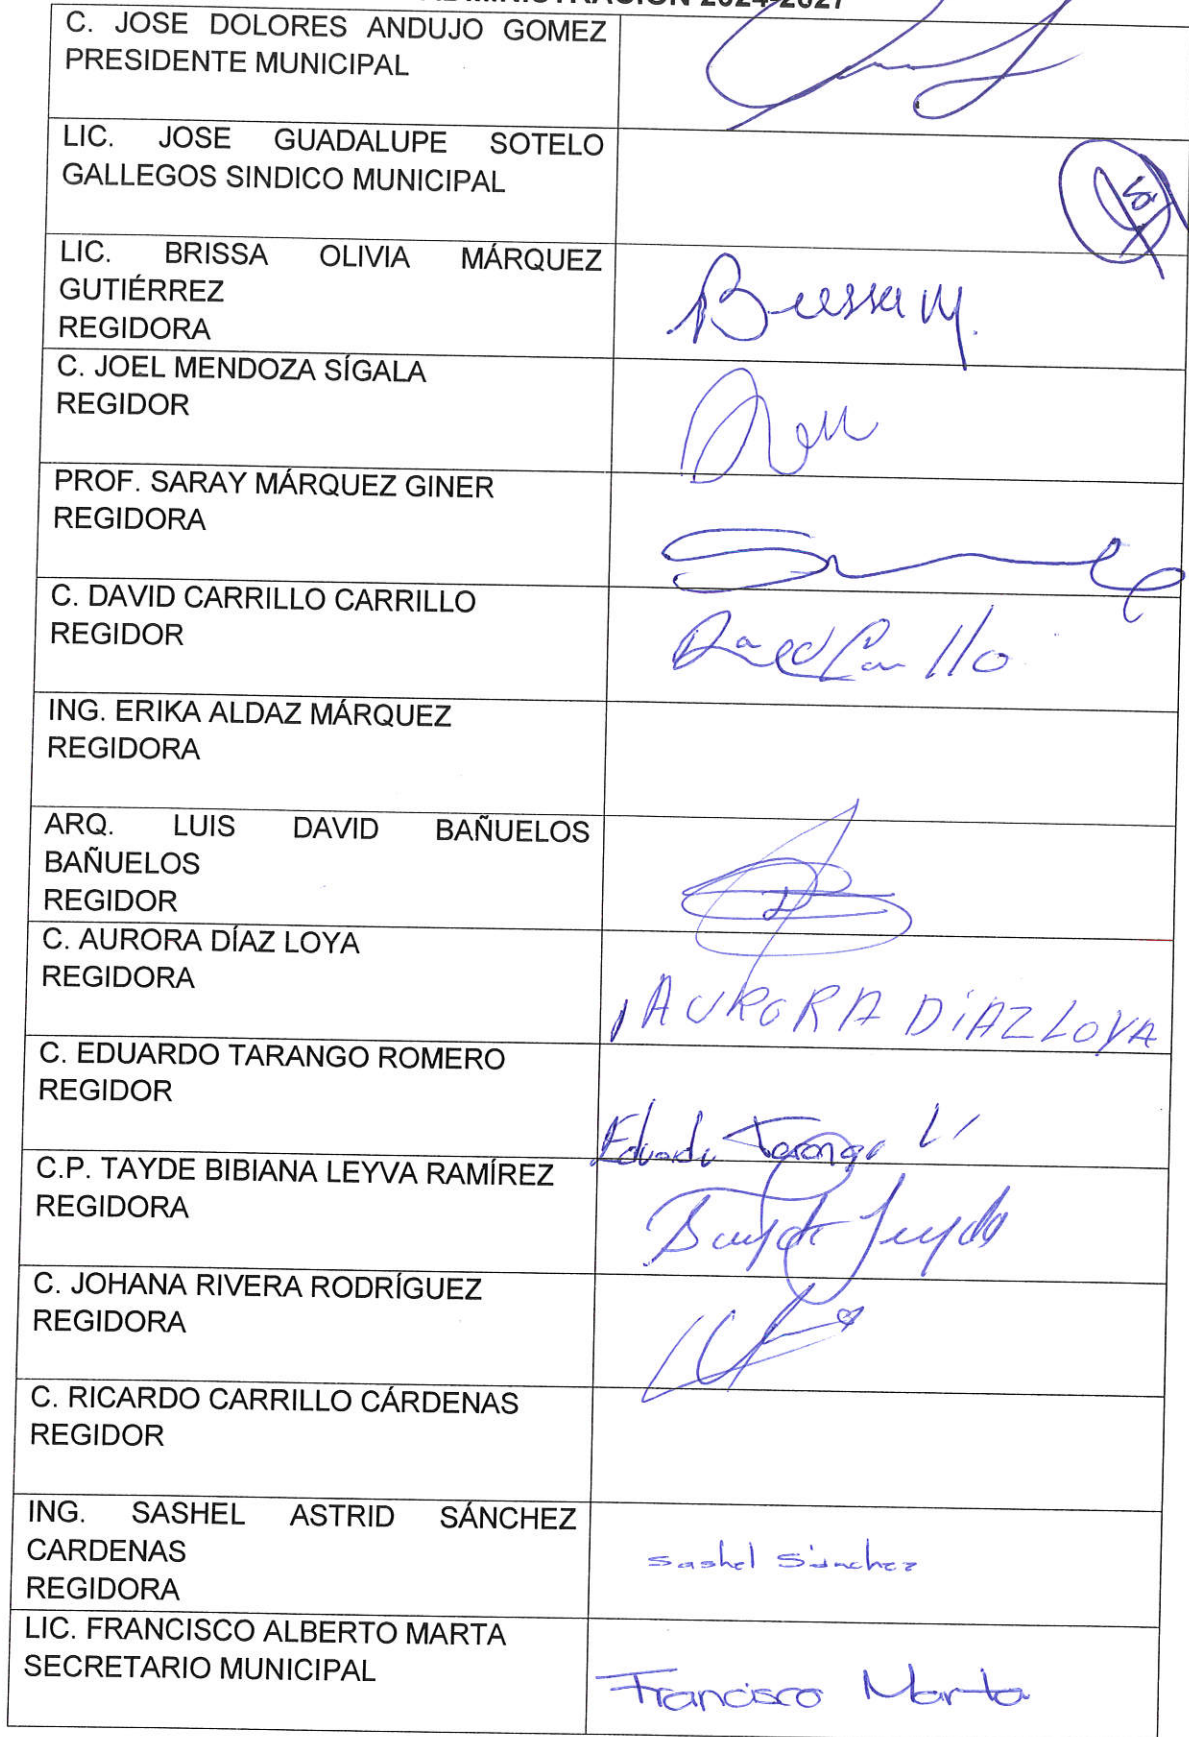 ADMINISTRACIÓN 2024-2027
C. JOSE DOLORES ANDUJO GOMEZ
PRESIDENTE MUNICIPAL
LIC. JOSE GUADALUPE SOTELO
GALLEGOS SINDICO MUNICIPAL
LIC. BRISSA OLIVIA MÁRQUEZ
GUTIÉRREZ
REGIDORA
Brissa M.
C. JOEL MENDOZA SÍGALA
REGIDOR
PROF. SARAY MÁRQUEZ GINER
REGIDORA
C. DAVID CARRILLO CARRILLO
REGIDOR
David Carrillo
ING. ERIKA ALDAZ MÁRQUEZ
REGIDORA
ARQ. LUIS DAVID BAÑUELOS
BAÑUELOS
REGIDOR
C. AURORA DÍAZ LOYA
REGIDORA
AURORA DiAZ LOYA
C. EDUARDO TARANGO ROMERO
REGIDOR
Eduardo Tarango
C.P. TAYDE BIBIANA LEYVA RAMÍREZ
REGIDORA
C. JOHANA RIVERA RODRÍGUEZ
REGIDORA
C. RICARDO CARRILLO CÁRDENAS
REGIDOR
ING. SASHEL ASTRID SÁNCHEZ
CARDENAS
REGIDORA
sashel Sánchez
LIC. FRANCISCO ALBERTO MARTA
SECRETARIO MUNICIPAL
Francisco Marta